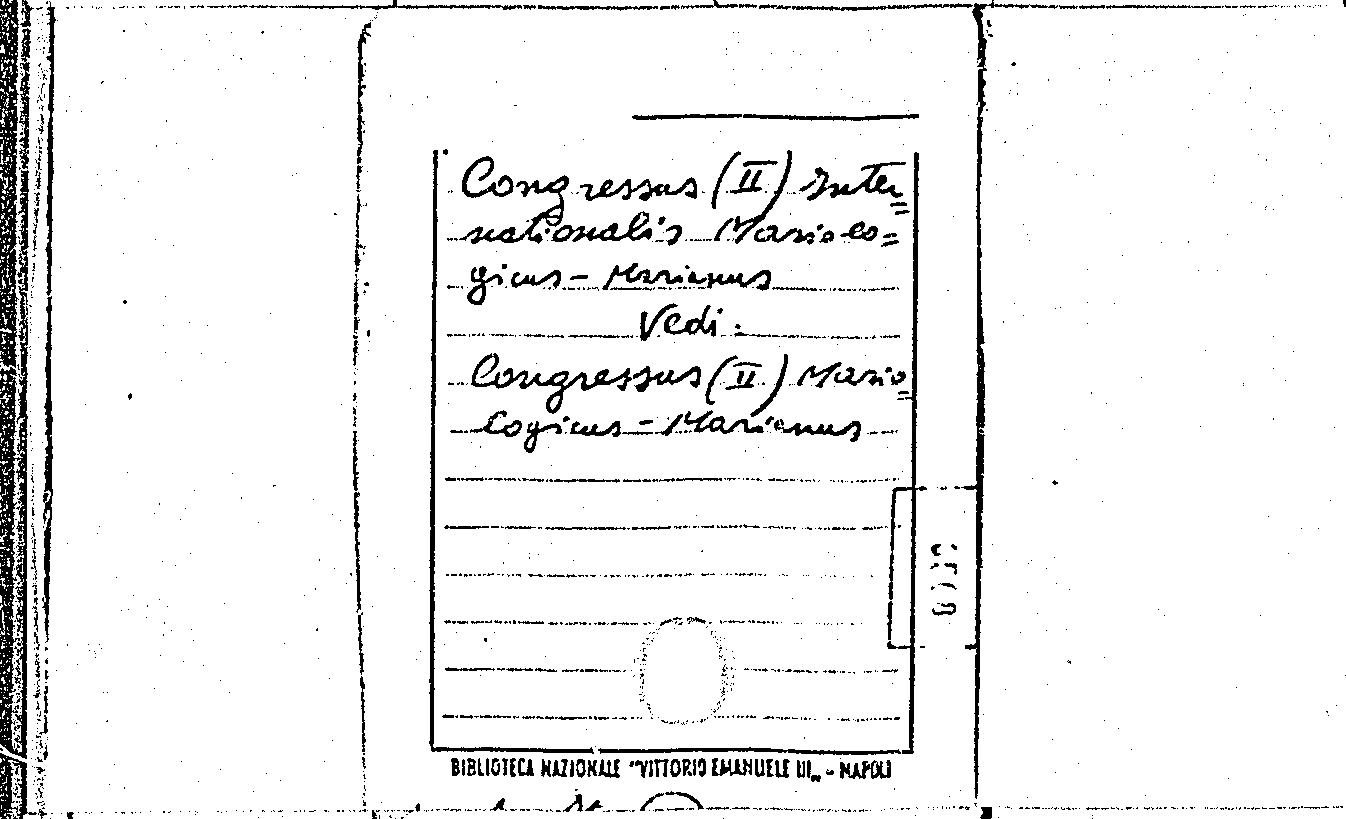 Congressus (II) Inter=
nationalis Mariolo=
gicus - Marianus
Vedi:
Congressus (II) Mario=
logicus - Marianus
BIBLIOTECA NAZIONALE "VITTORIO EMANUELE III„ - NAPOLI